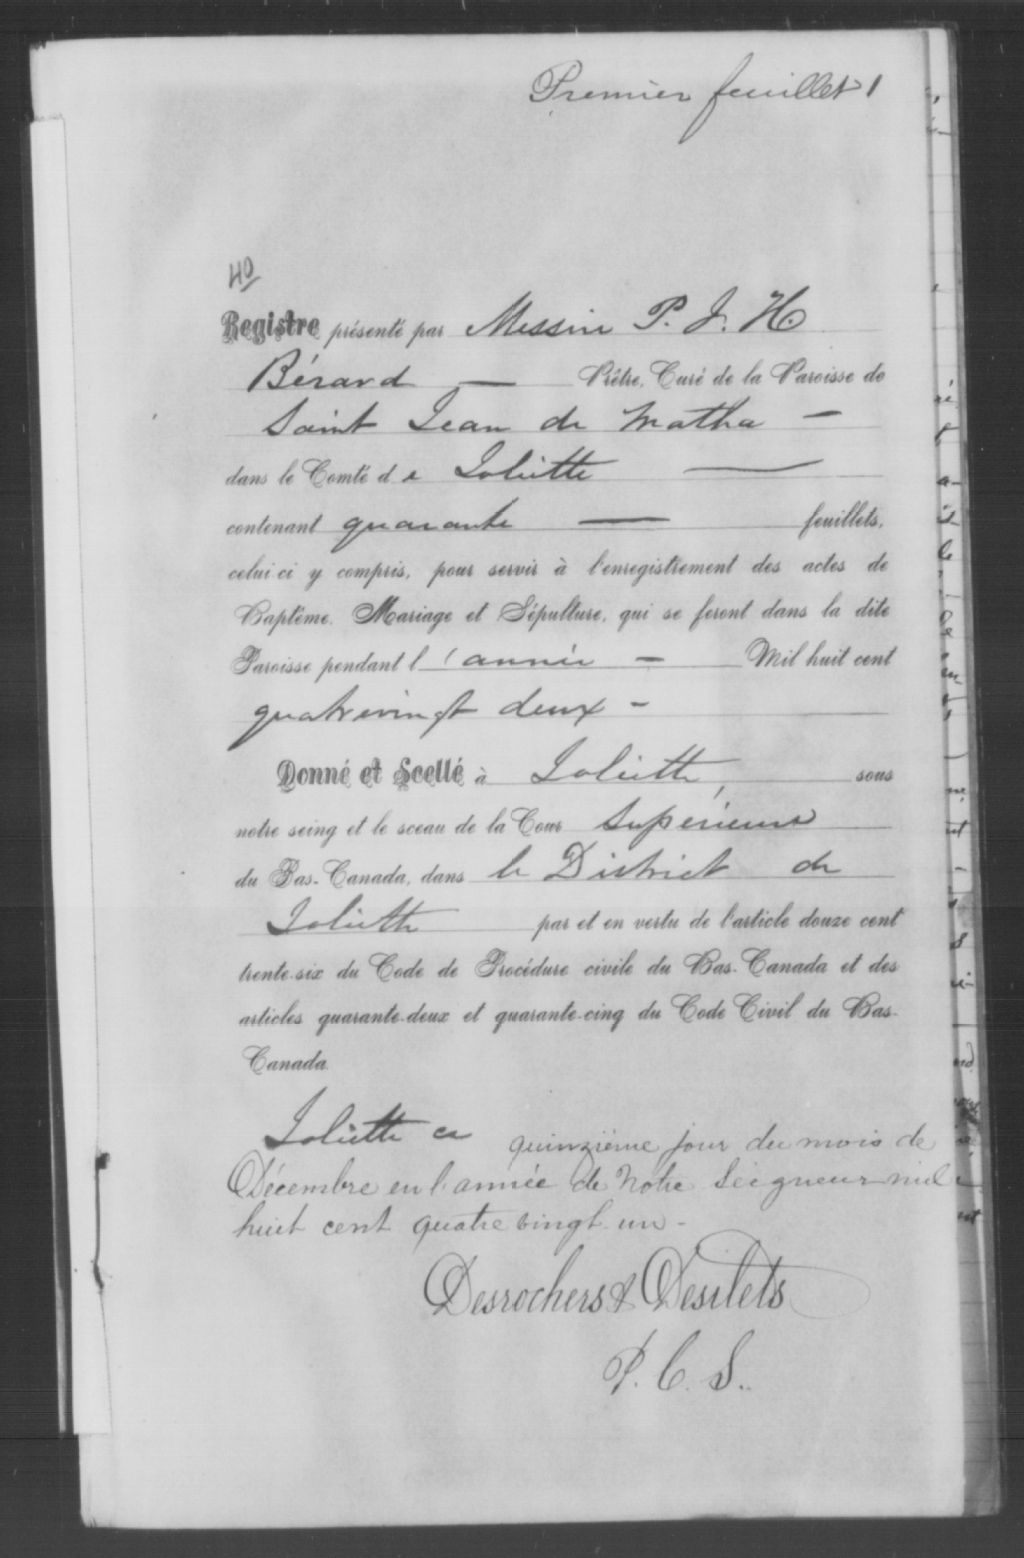 Premier feuillet 1
40
Registre présenté par Messire P. J. H.
Bérard — Prêtre, Curé de la Paroisse de
Saint Jean de Matha —
dans le Comté de Joliette —
contenant quarante — feuillets,
celui-ci y compris, pour servir à l'enregistrement des actes de
Baptême, Mariage et Sépulture, qui se feront dans la dite
Paroisse pendant l'année — Mil huit cent
quatrevingt deux -
Donné et Scellé à Joliette, sous
notre seing et le sceau de la Cour Supérieure
du Bas-Canada, dans le District de
Joliette par et en vertu de l'article douze cent
trente-six du Code de Procédure civile du Bas-Canada et des
articles quarante-deux et quarante-cinq du Code Civil du Bas-
Canada.
Joliette ce quinzième jour du mois de
Décembre en l'année de Notre Seigneur mil
huit cent quatre vingt-un -
Desrochers & Desilets
P. C. S.